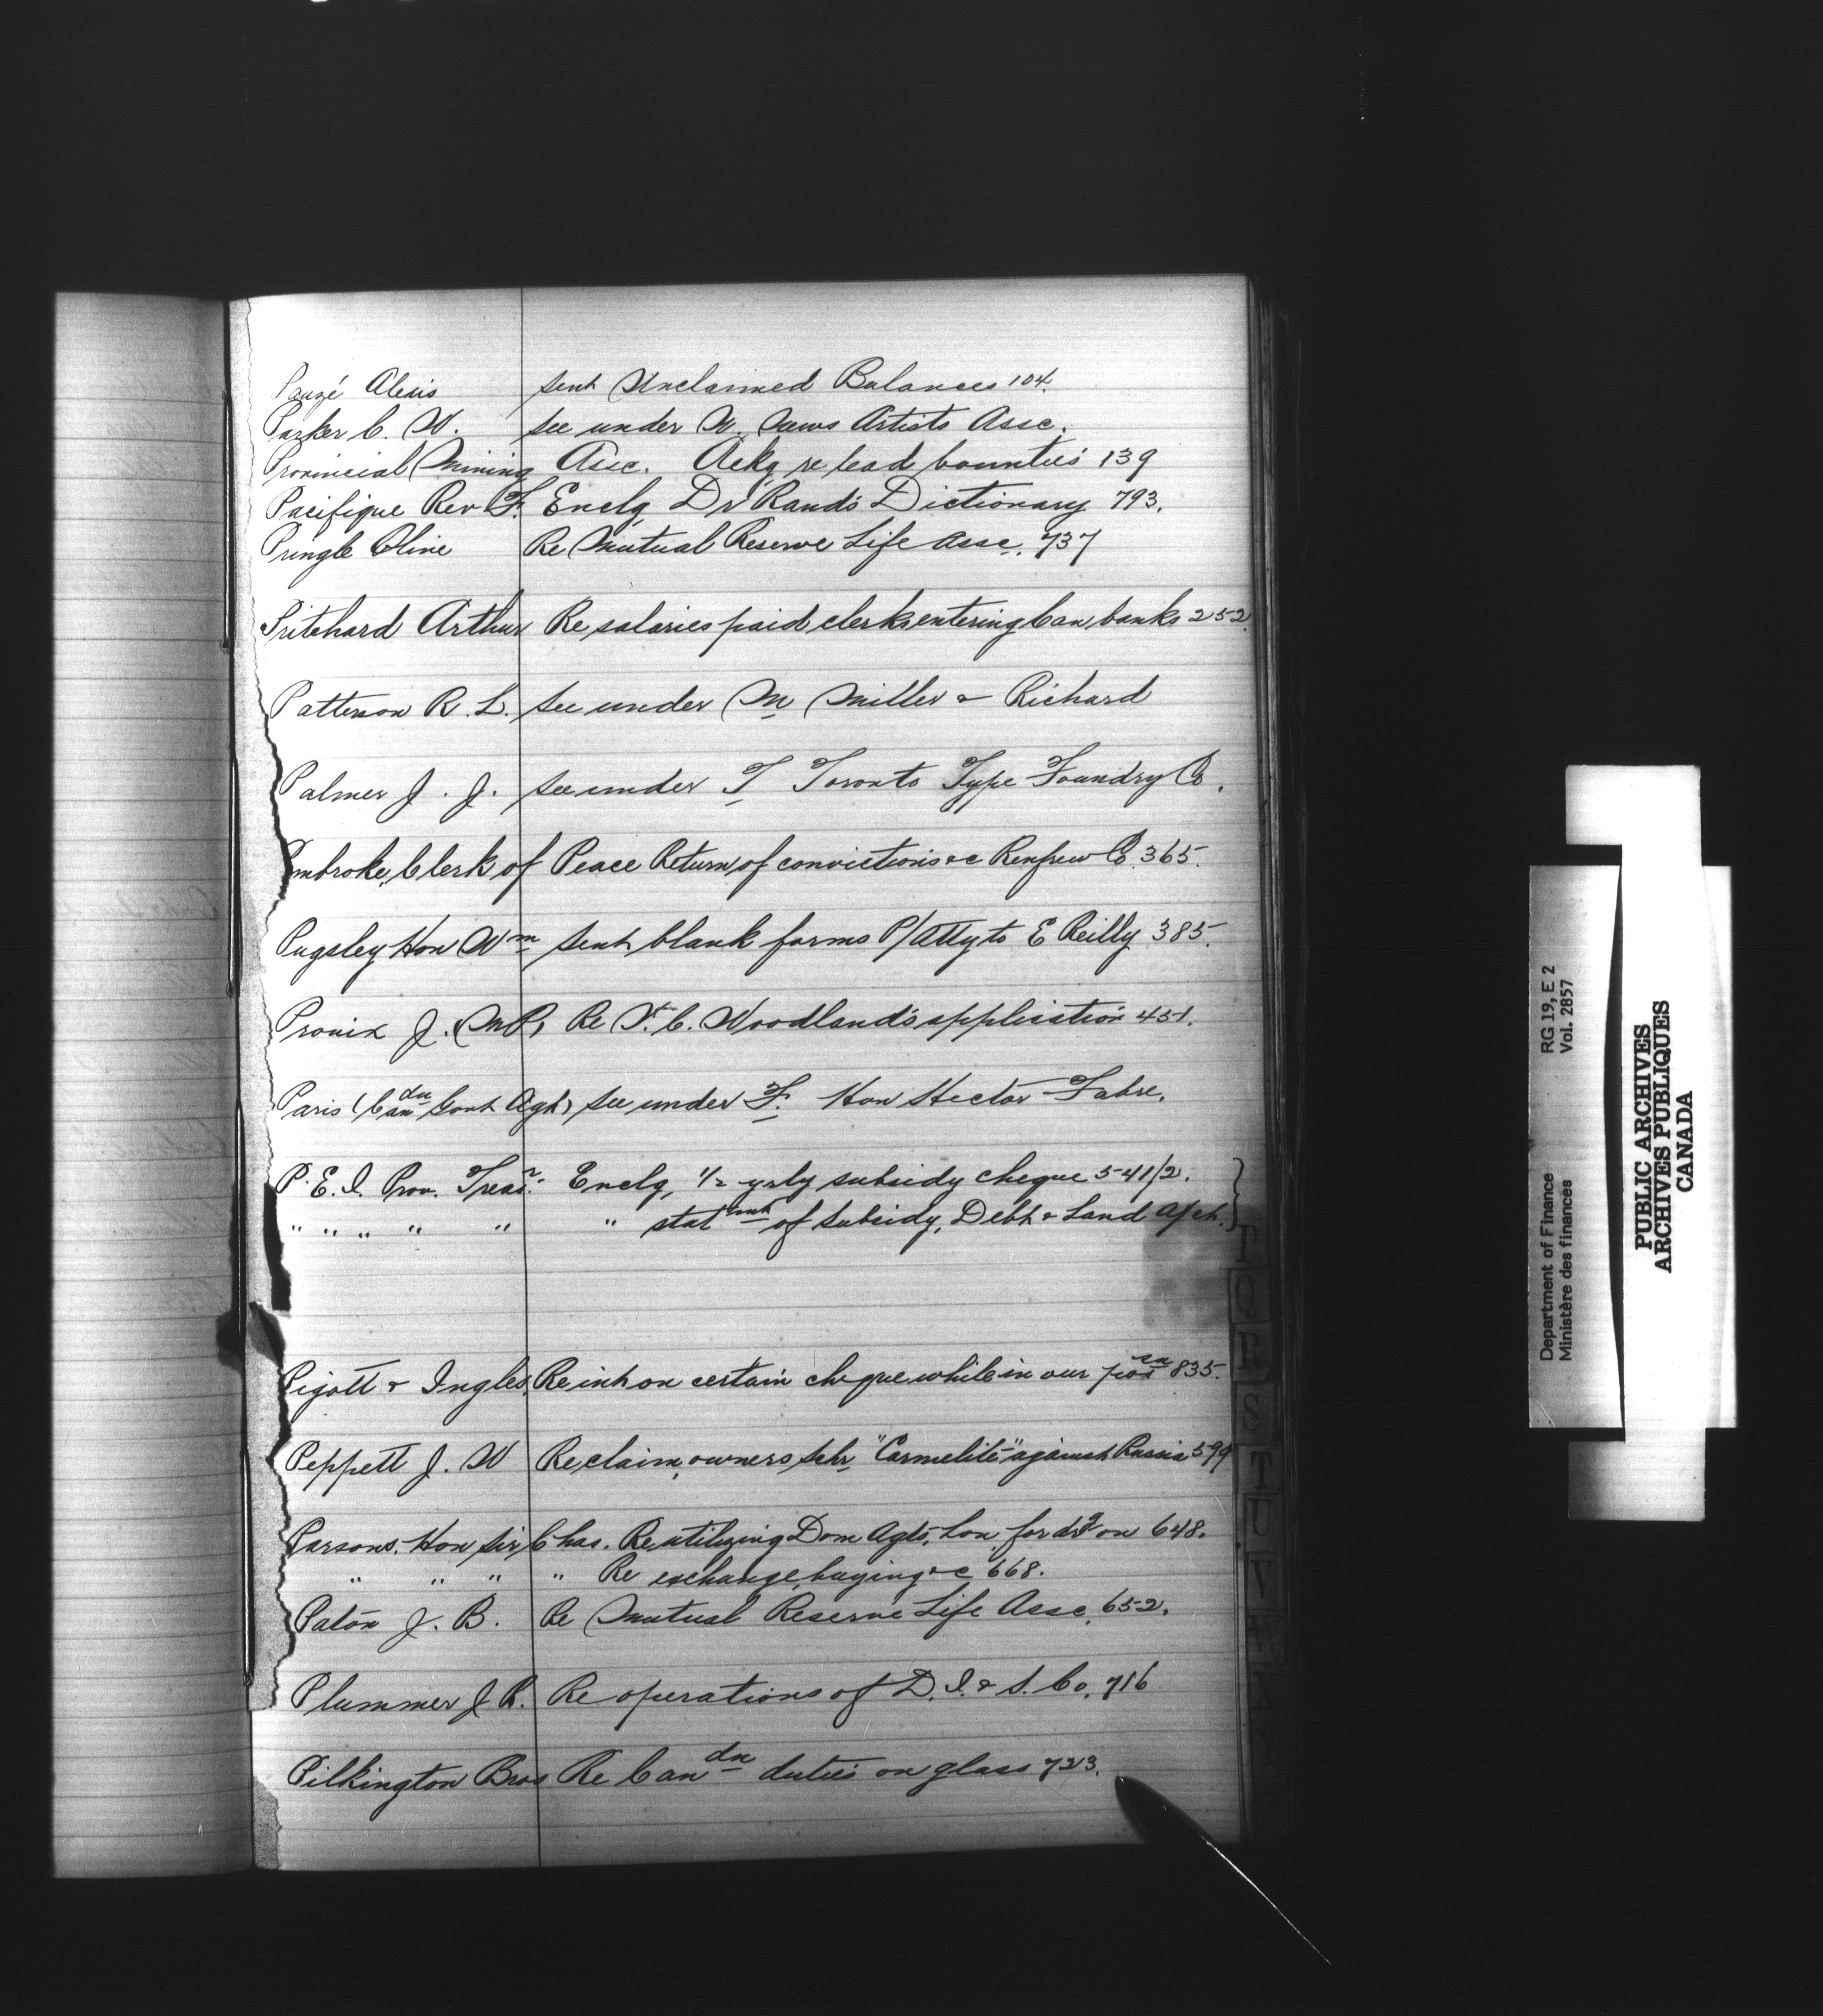 Pauzé Alexis sent Unclaimed Balances 104.
Parker C. W. see under N. News Artists Assc.
Provincial Mining Assc. Ackg re lead bounties 139
Pacifique Rev F. Enclg Dr Rand's Dictionary 793.
Pringle Oline Re Mutual Reserve Life Assc. 737
Pritchard Arthur Re salaries paid clerks entering Can banks 252.
Patterson R. L. see under M Miller & Richard
Palmer J. J. see under T Toronto Type Foundry Co.
Pembroke, Clerk of Peace Return of convictions &c Renfrew Co. 365.
Pugsley Hon Wm sent blank forms P/Atty to E Reilly 385.
Proulx J. (MP) Re F. C. Woodland's application 451.
Paris (Candn Govt Agt) see under F. Hon Hector Fabre.
P. E. I. Prov. Treasr. Enclg, 1/2 yrly subsidy cheque 541/2.
" " " " " " statmnt of Subsidy, Debt & Land A/ct.
Pigott & Ingles Re int on certain cheque while in our possn 835.
Peppett J. W Re claim, owners Schr "Carmelite" against Russia 599
Parsons. Hon Sir Chas. Re utilizing Dom Agts, Lon. for drg on 648.
" " " " Re exchange, buying &c 668.
Paton J. B. Re Mutual Reserve Life Assc. 652.
Plummer J. H. Re operations of D. I. & S. Co. 716
Pilkington Bros Re Candn duties on glass 723.
T
Q
R
S
T
U
V
W
X
RG 19, E 2
Vol. 2857
Department of Finance
Ministère des finances
PUBLIC ARCHIVES
ARCHIVES PUBLIQUES
CANADA